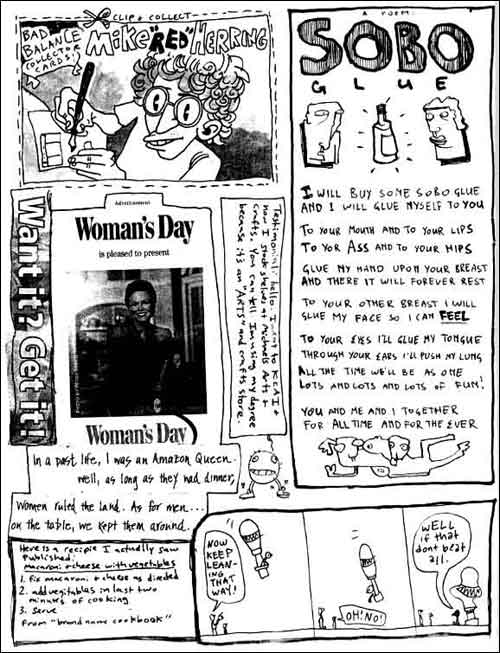 CLIP + COLLECT
BAD
BALANCE
COLLECTOR
CARDS!
MIKE "RED" HERRING
A POEM:
SOBO
GLUE
I WILL BUY SOME SOBO GLUE
AND I WILL GLUE MYSELF TO YOU
TO YOUR MOUTH AND TO YOUR LIPS
TO YOR ASS AND TO YOUR HIPS
GLUE MY HAND UPON YOUR BREAST
AND THERE IT WILL FOREVER REST
TO YOUR OTHER BREAST I WILL
GLUE MY FACE SO I CAN FEEL
TO YOUR EYES I'LL GLUE MY TONGUE
THROUGH YOUR EARS I'LL PUSH MY LUNG
ALL THE TIME WE'LL BE AS ONE
LOTS AND LOTS AND LOTS OF FUN!
YOU AND ME AND I TOGETHER
FOR ALL TIME AND FOR THE EVER
Want it? Get it!
Advertisement
Woman's Day
is pleased to present
Woman's Day
Testimonial: hello. I went to KCAI
now I stock shelves at Michaels Arts +
crafts. You can tell I'm using my degree
because it's an "ARTS" and crafts store.
In a past life, I was an Amazon Queen.
well, as long as they had dinner,
Women ruled the land. As for men...
on the table, we kept them around.
Here is a recipie I actually saw
published:
macaroni + cheese with vegetables
1. fix macaroni + cheese as directed
2. add vegitables in last two
minutes of cooking
3. serve
From "brand name cookbook"
NOW
KEEP
LEAN-
ING
THAT
WAY!
OH! NO!
WELL
if that
dont beat
all.